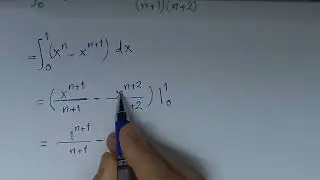 ∫₀ (n+1)(n+2)
= ∫₀¹ (xⁿ - xⁿ⁺¹) dx
= (xⁿ⁺¹/(n+1) - xⁿ⁺²/+2) |₀¹
= 1ⁿ⁺¹/(n+1) -